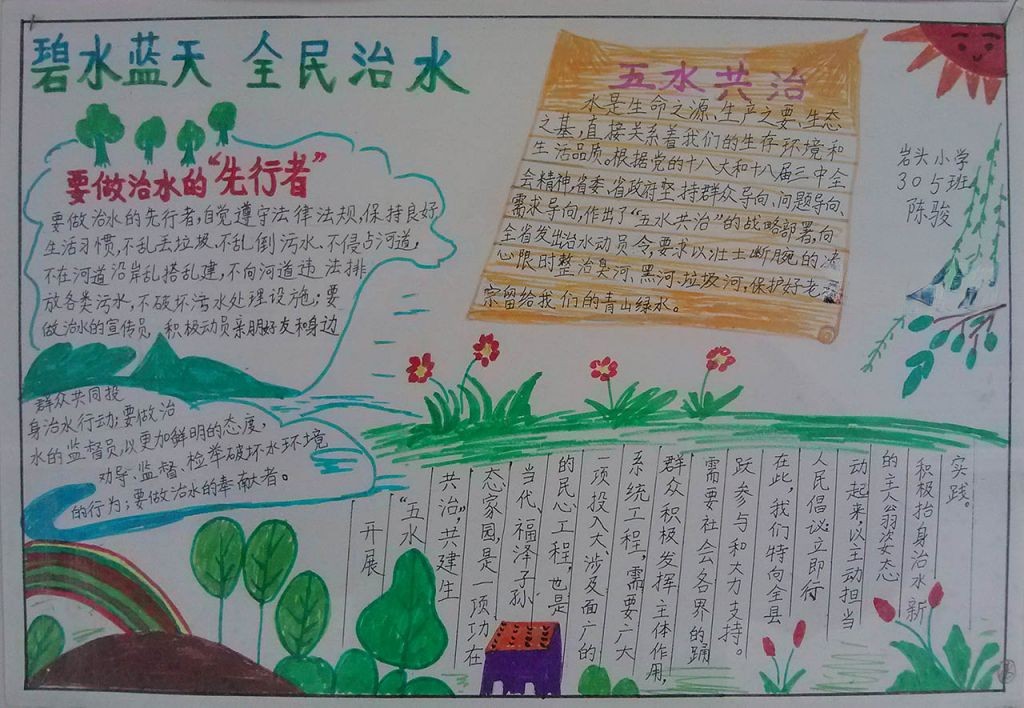 碧水蓝天 全民治水
五水共治
水是生命之源、生产之要、生态
之基,直接关系着我们的生存环境和
生活品质。根据党的十八大和十八届三中全
会精神,省委、省政府坚持群众导向、问题导向、
需求导向,作出了“五水共治”的战略部署,向
全省发出治水动员令,要求以壮士断腕的决
心限时整治臭河、黑河、垃圾河,保护好老
宗留给我们的青山绿水。
岩头小学
305班
陈骏
要做治水的“先行者”
要做治水的先行者,自觉遵守法律法规,保持良好
生活习惯,不乱丢垃圾、不乱倒污水、不侵占河道,
不在河道沿岸乱搭乱建,不向河道违法排
放各类污水,不破坏污水处理设施;要
做治水的宣传员,积极动员亲朋好友和身边
群众共同投
身治水行动;要做治
水的监督员,以更加鲜明的态度,
劝导、监督、检举破坏水环境
的行为;要做治水的奉献者。
开展
“五水
共治”,共建生
态家园,是一项功在
当代、福泽子孙
的民心工程,也是
一项投入大、涉及面广的
系统工程,需要广大
群众积极发挥主体作用,
需要社会各界的踊
跃参与和大力支持。
在此,我们特向全县
人民倡议立即行
动起来,以主动担当
的主人翁姿态
积极抬身治水新
实践。